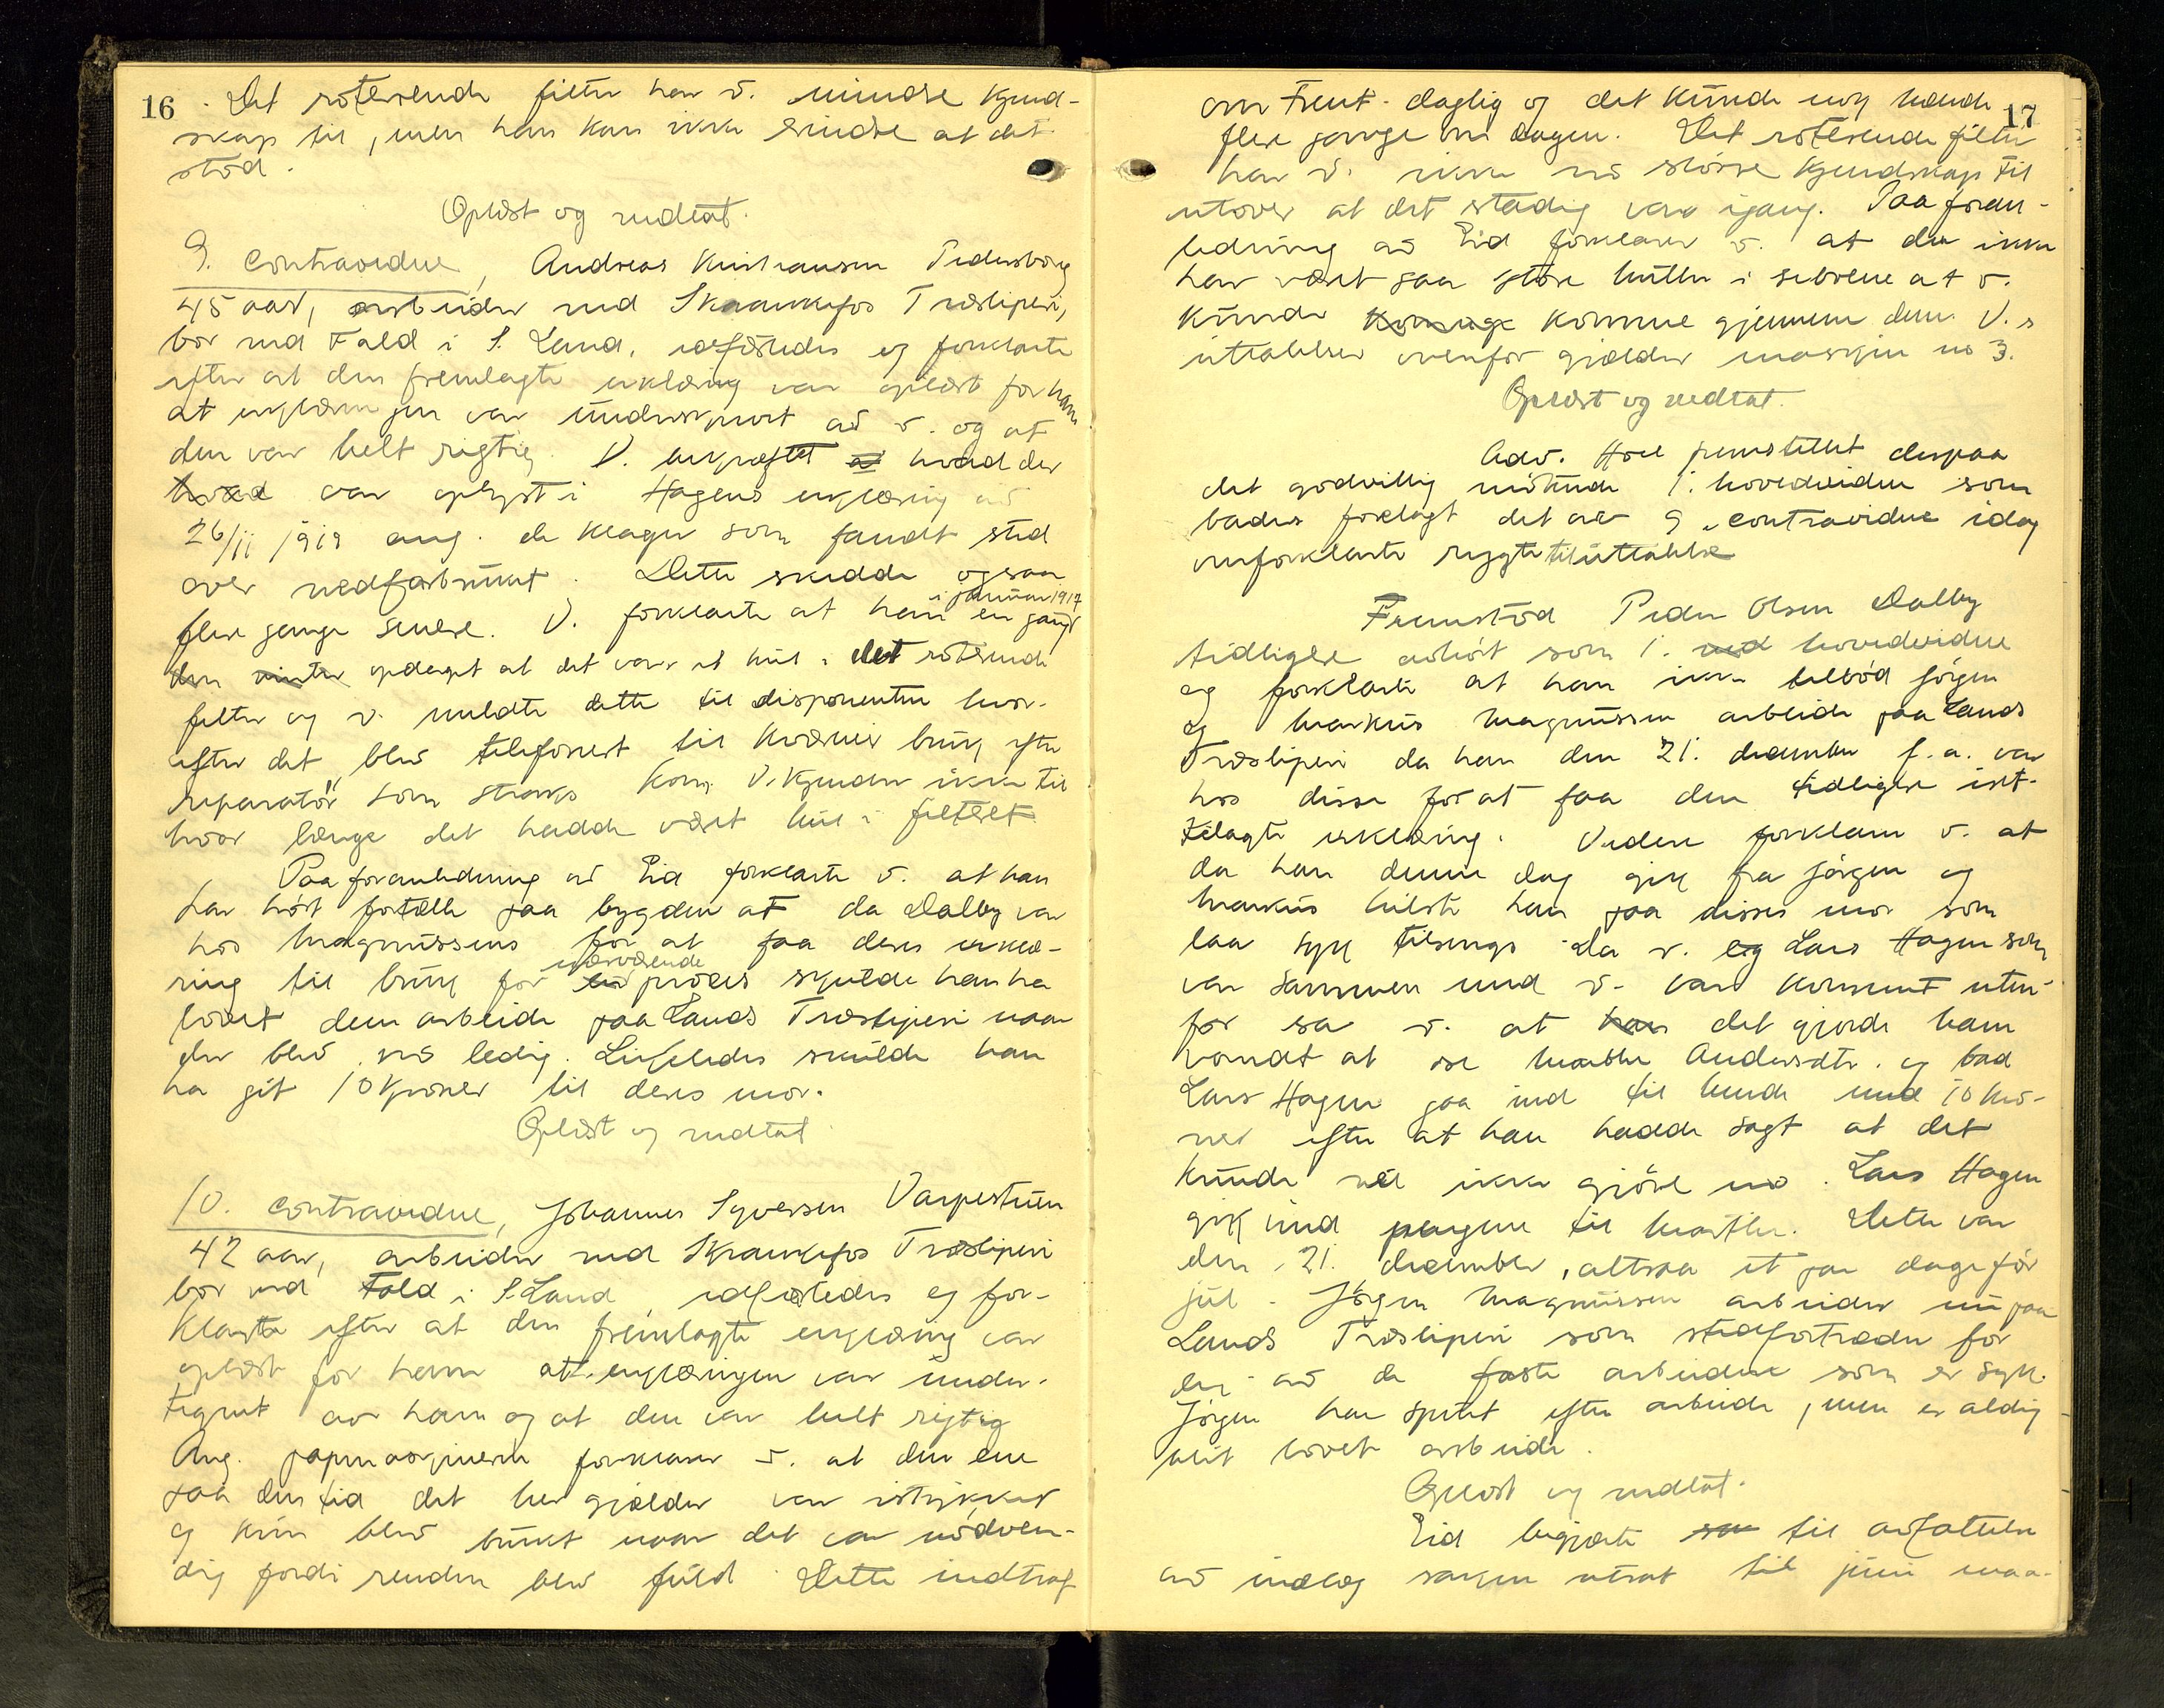 16
Det roterende filter har v. mindre kjend-
skap til, men han kan ikke erindre at det
stod.
Oplæst og vedtat.
9. contravidne, Andreas Kristiansen Pedersborg
45 aar, arbeider ved Skrankefos Træsliperi,
bor ved Fald i S. Land, edfæstedes og forklarte
efter at den fremlagte erklæring var oplæst for ham
at erklæringen var underskrevet av v. og at
den var helt rigtig. V. bekræftet a hvad der
hvad var oplyst i Hagens erklæring av
26/11 1919 ang. de klager som fandt sted
over vedforbruket. Dette skedde ogsaa
flere gange senere. V. forklarte at han i januar 1917 en gang
den vinter opdaget at det var et hul i det roterende
filter og v. meldte dette til disponenten hvor-
efter det blev telefonert til Kværner bruk efter
reparatör som straks kom. V. kjender ikke til
hvor længe det hadde været hul i filteret
Paa foranledning av Eid forklarte v. at han
har hört fortælle paa bygden at da Dalby var
hos Magnussens for at faa deres erklæ-
ring til bruk for nærværende en proces skulde han ha
lovet dem arbeide paa Lands Træsliperi naar
der blev no ledig. Likeledes skulde han
ha git 10 kroner til deres mor.
Oplæst og vedtat
10. contravidne, Johannes Syversen Varpestuen
42 aar, arbeider ved Skrankefos Træsliperi
bor ved Fald i S. Land, edfæstedes og for-
klarte efter at den fremlagte erklæring var
oplæst for ham at erklæringen var under-
tegnet av ham og at den var helt rigtig
Ang. papmaskinerne forklarer v. at den ene
paa den tid det her gjælder var istykker
og kun blev brukt naar det var nödven-
dig fordi renden blev fuld. Dette indtraf
17
om Trent. daglig og det kunde nok hænde
flere gange om dagen. Det roterende filter
har v. ikke no större kjendskap til
utover at det stadig var igang. Paa foran-
ledning av Eid forklarer v. at der ikke
har været saa store huller i silerne at v.
kunde komme gjennem dem. V.s
uttalelser ovenfor gjælder maskin no 3.
Oplæst og vedtat.
Adv. Hoel fremstillet derpaa
det godvillig mötende 1. hovedvidne som
bades forelagt det av 9. contravidne idag
omforklarte rygte til uttalelse
Fremstod Peder Olsen Dalby
tidligere avhört som 1. ved hovedvidne
og forklarte at han ikke tilböd Jörgen
og Markus Magnussen arbeide paa Lands
Træsliperi da han den 21. december f.a. var
hos disse for at faa den tidligere iret-
telagte erklæring. Videre forklarer v. at
da han denne dag gik fra Jörgen og
Markus hilste han paa disses mor som
laa syk tilsengs. Da v. og Lars Hagen som
var sammen med v. var kommet uten-
for sa v. at han det gjorde ham
vondt at se Marthe Andersdtr. og bad
Lars Hagen gaa ind til hende med 10 kro-
ner efter at han hadde sagt at det
kunde vel ikke gjöre no. Lars Hagen
gik ind pengene til Marthe. Dette var
den 21. december, altsaa et par dage för
jul. Jörgen Magnussen arbeider nu paa
Lands Træsliperi som stedfortræder for
en av de faste arbeidere som er syk.
Jörgen har spurt efter arbeide, men er aldrig
blit lovet arbeide.
Oplæst og vedtat.
Eid begjærte sa til avfattelse
av indlæg saken utsat til juni maa-